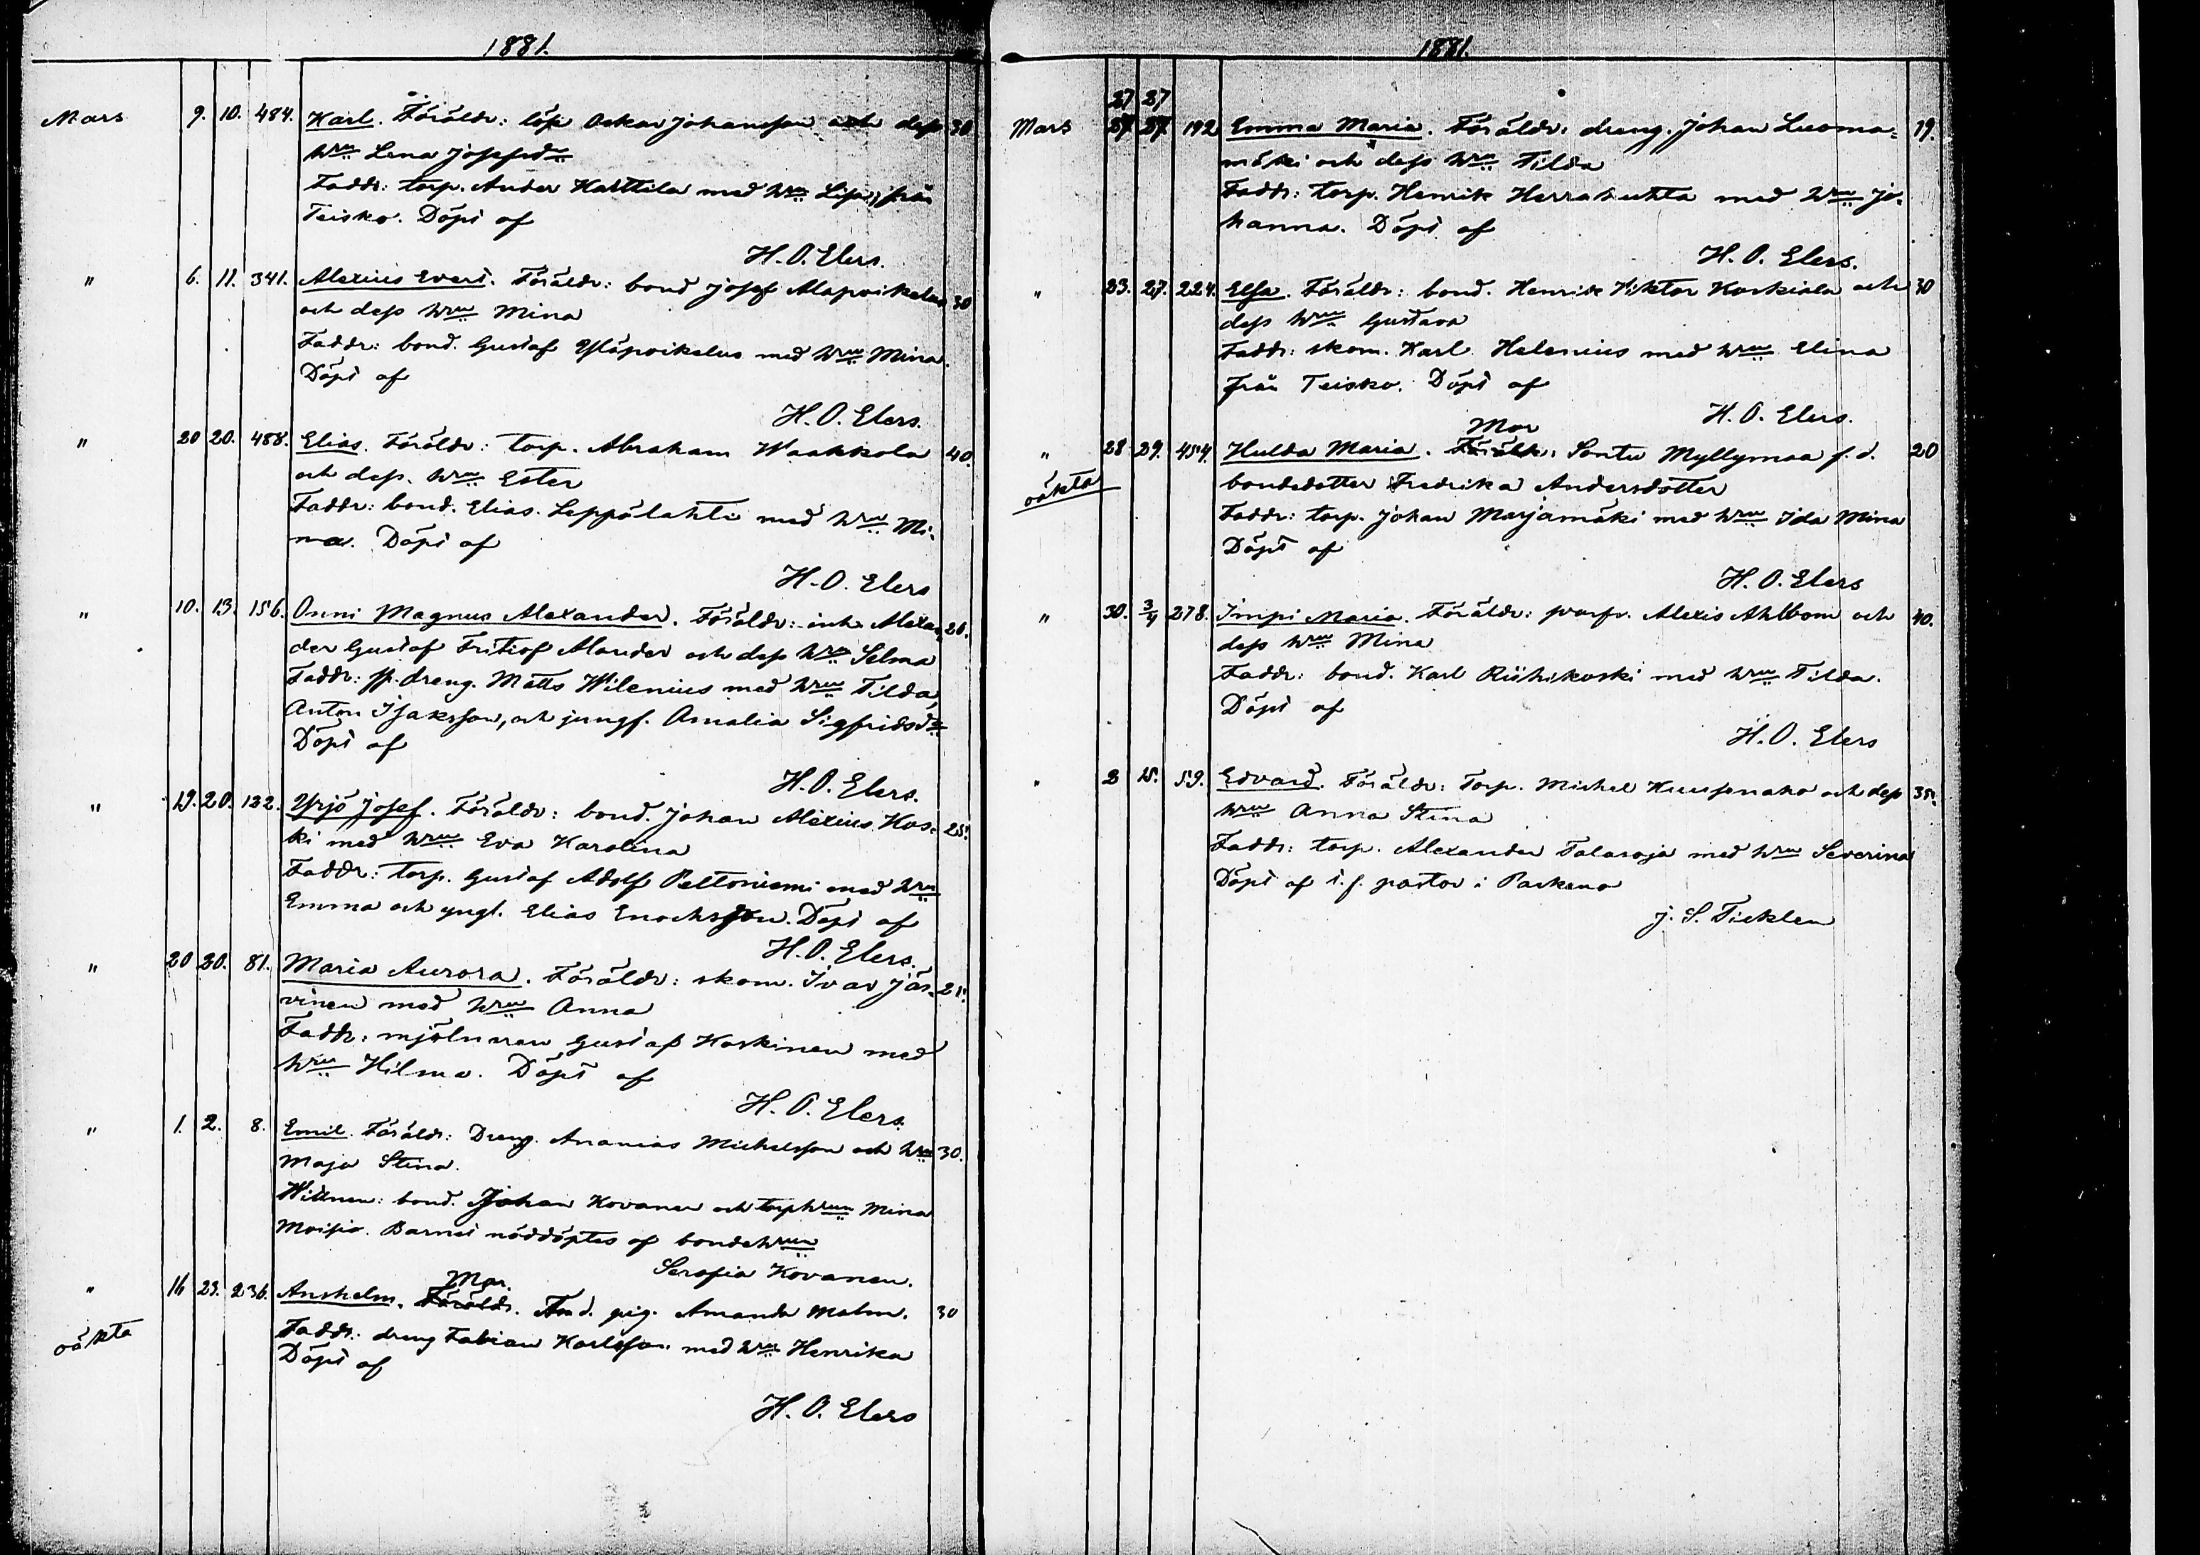 1881.
Mars 9. 10. 484. Karl. Föräldr: lösk Oskar Johansson och dess 30
hru Lena Josefsdr
Faddr: torp. Ander Harttila med hru Lisa, från
Teisko. Döpt af
H. O. Elers.
" 6. 11. 341. Alexius Evert. Föräldr: bond Josef Alapoikelus 30
och dess hru Mina
Faddr: bond. Gustaf Yläpoikelus med hru Mina.
Döpt af
H. O. Elers.
" 20 20. 488. Elias. Föräldr: torp. Abraham Waakkola 40.
och dess. hru Ester
Faddr: bond. Elias Leppälahti med hru Mi-
na. Döpt af
H. O. Elers
" 10. 13. 156. Onni Magnus Alexander. Föräldr: inh. Alexan- 26.
der Gustaf Fritiof Alander och dess hru Selma
Faddr: dreng. Matts Wilenius med hru Tilda,
Anton Isaksson, och jungf. Amalia Sigfridsdr
Döpt af
H. O. Elers.
" 19. 20. 122. Yrjö Josef. Föräldr: bond. Johan Alexius Kos- 25.
ki med hru Eva Karolina
Faddr: torp. Gustaf Adolf Peltoniemi med hru
Emma och yngl. Elias Enochsson. Döpt af
H. O. Elers.
" 20 20. 81. Maria Aurora. Föräldr: skom. Ivar Jär- 25.
vinen med hru Anna
Faddr: mjölnaren Gustaf Koskinen med
hru Hilma. Döpt af
H. O. Elers.
" 1. 2. 8. Emil. Föräldr: Dreng. Ananias Michelsson och hru 30.
Maja Stina.
Wittnen: bond. Johan Kovanen och torphrun Mina
Moisio. Barnet nöddöptes af bondehrun
Serafia Kovanen.
Mor.
" 16 23. 236. Anshelm. Föräldr. pig. Amanda Malm. 30
oäkta Faddr: dreng Fabian Karlsson med hru Henrika
Döpt af
H. O. Elers
1881.
27 27
Mars 27. 27. 192 Emma Maria. Föräldr: dreng. Johan Luoma= 19.
mäki och dess hru Tilda
Faddr: torp. Henrik Herralahta med hru Jo-
hanna. Döpt af
H. O. Elers.
" 23. 27. 224. Elsa. Föräldr: bond. Henrik Viktor Koskiala och 30
dess hru Gustava
Faddr: skom. Karl Helenius med hru Elina
från Teisko. Döpt af
H. O. Elers.
Mor
" 28 29. 454. Hulda Maria. Föräldr: Sontu Myllymaa f. d. 20
oäkta bondedotter Fredrika Andersdotter
Faddr: torp. Johan Marjamäki med hru Ida Mina
Döpt af
H. O. Elers
" 30. 3/4 278. Impi Maria. Föräldr: Alexis Ahlbom och 40.
dess hru Mina
Faddr: bond. Karl Riihikoski med hru Tilda.
Döpt af
H. O. Elers
" 2 15. 59. Edvard. Föräldr: Torp. Michel och dess 35.
hru Anna Stina
Faddr: torp. Alexander Talasoja med hru Severina
Döpt af t. f. pastor i Parkano
J. S. Ticklen